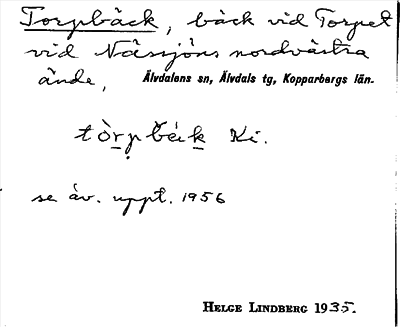 Torpbäck, bäck vid Torpet
vid Nässjöns nordvästra
ände, Älvdalens sn, Älvdals tg, Kopparbergs län.
tòrpbäk Ki.
se äv. uppt. 1956
HELGE LINDBERG 1935.